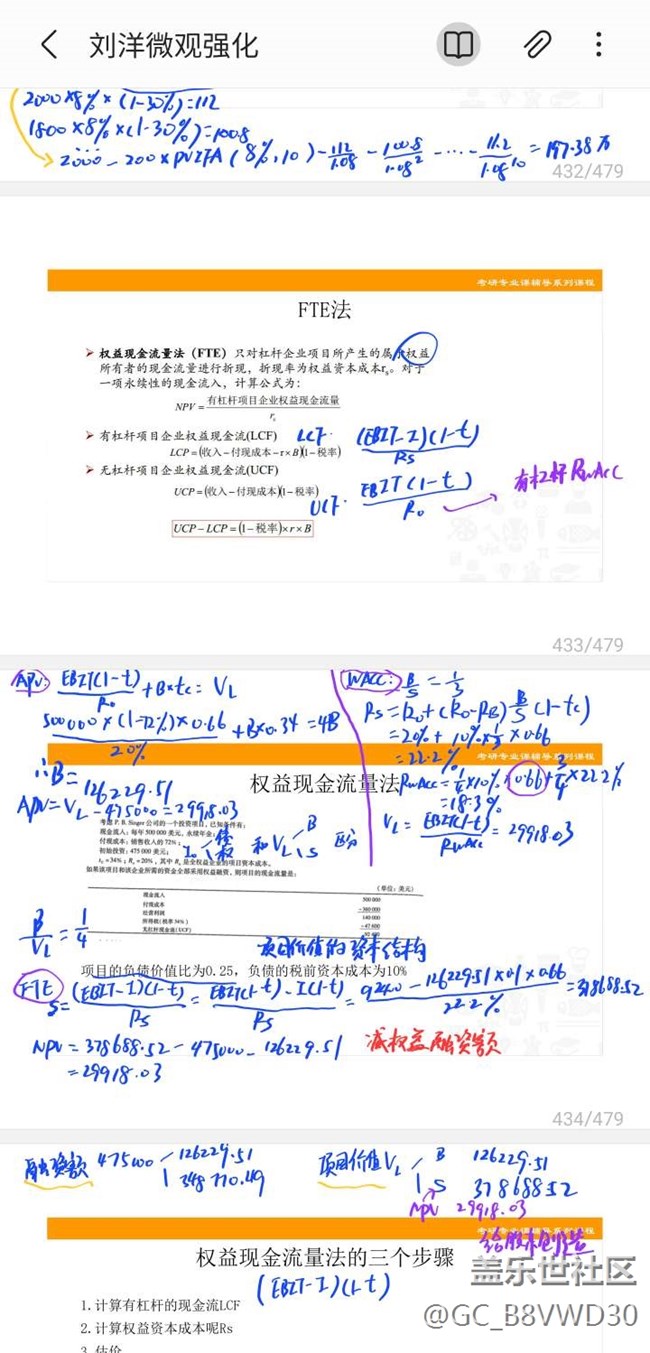 刘洋微观强化
2000×8%×(1-30%)=112
1800×8%×(1-30%)=100.8
2000-200×PVIFA(8%,10)-112/1.08-100.8/1.08²-……-11.2/1.08¹⁰=197.38万
432/479
考研专业课辅导系列课程
FTE法
➢ 权益现金流量法(FTE)只对杠杆企业项目所产生的属于权益
所有者的现金流量进行折现,折现率为权益资本成本rs。对于
一项永续性的现金流入,计算公式为:
NPV=有杠杆项目企业权益现金流量/rs
➢ 有杠杆项目企业权益现金流(LCF) LCF. (EBIT-I)(1-t)/Rs
LCP=(收入-付现成本-r×B)(1-税率)
➢ 无杠杆项目企业权益现金流(UCF) UCF. EBIT(1-t)/R0 有杠杆RWACC
UCP=(收入-付现成本)(1-税率)
UCP-LCP=(1-税率)×r×B
433/479
APV: EBIT(1-t)/R0+B×tc=VL
500000×(1-72%)×0.66/20%+B×0.34=4B
∴B=126229.51
APV=VL-475000=29918.03
WACC: B/S=1/3
Rs=R0+(R0-RB)B/S(1-tc)
=20%+10%×1/3×0.66
=22.2%
RWACC=1/4×10%×0.66+3/4×22.2%
=18.3%
VL=EBIT(1-t)/RWACC=29918.03
考研专业课辅导系列课程
权益现金流量法
考虑P. B. Singer公司的一个投资项目,已知条件有:
现金流入:每年500 000美元,永续年金;
付现成本:销售收入的72%;
初始投资:475 000美元;
I0 债 权 和VL B S 区分
tc=34%;R0=20%,其中R0是全权益企业的项目资本成本。
如果该项目和该企业所需的资金全部采用权益融资,则项目的现金流量是:
(单位:美元)
现金流入 500 000
付现成本 -360 000
经营利润 140 000
所得税(税率34%) -47 600
无杠杆现金流(UCF) 92 400
B/VL=1/4
项目价值的资本结构
项目的负债价值比为0.25,负债的税前资本成本为10%
FTE
S=(EBIT-I)(1-t)/Rs=EBIT(1-t)-I(1-t)/Rs=92400-126229.51×0.1×0.66/22.2%=378688.52
NPV=378688.52-475000-126229.51 减权益融资额
=29918.03
434/479
融资额 475000 126229.51
348770.49
项目价值VL B 126229.51
S 378688.52
NPV 29918.03
给股东创造
考研专业课辅导系列课程
权益现金流量法的三个步骤
(EBIT-I)(1-t)
1.计算有杠杆的现金流LCF
2.计算权益资本成本呢Rs
3.估价
盖乐世社区
@GC_B8VWD30